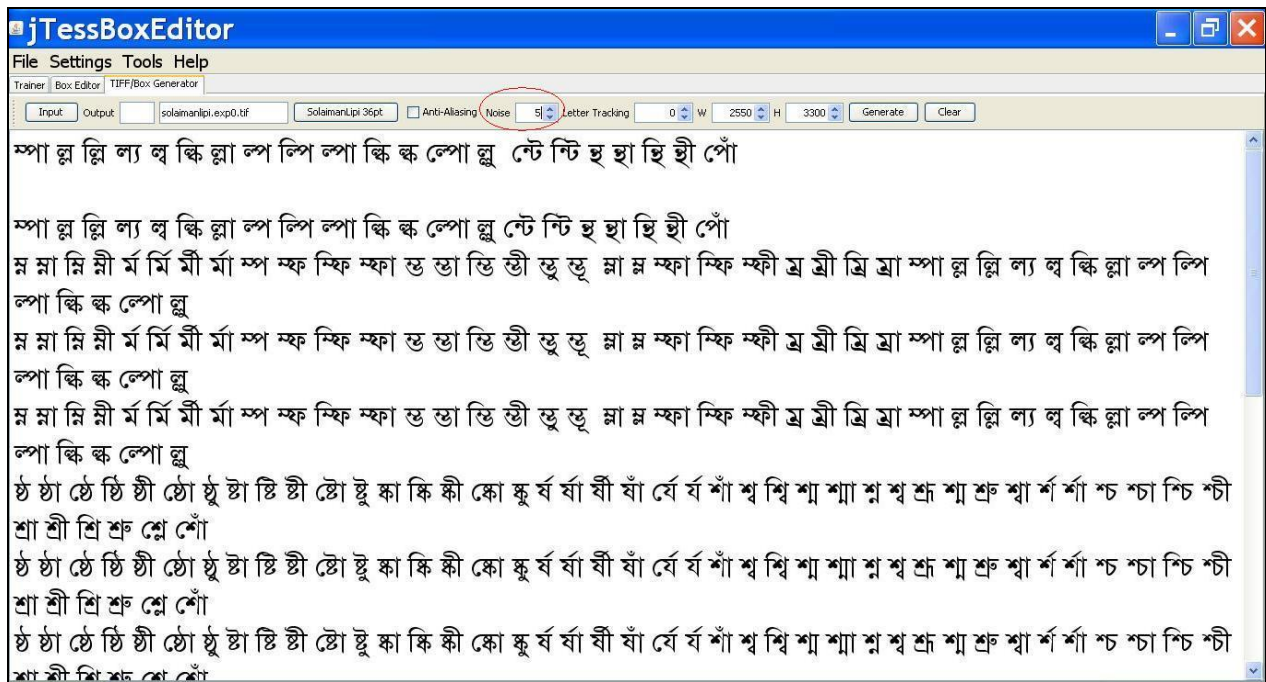 jTessBoxEditor
File Settings Tools Help
Trainer Box Editor TIFF/Box Generator
Input Output solaimanlipi.exp0.tif SolaimanLipi 36pt Anti-Aliasing Noise 5 Letter Tracking 0 W 2550 H 3300 Generate Clear
ম্পা ল্ল ল্লি ল্য ল্ব ল্কি ল্লা ল্প ল্পি ল্পা ল্কি ল্ক ল্পো ল্লু ন্টে ন্টি ন্থ ন্থা ন্থি ন্থী পোঁ
ম্পা ল্ল ল্লি ল্য ল্ব ল্কি ল্লা ল্প ল্পি ল্পা ল্কি ল্ক ল্পো ল্লু ন্টে ন্টি ন্থ ন্থা ন্থি ন্থী পোঁ
ম্ন ম্না ম্নি ম্নী র্ম র্মি র্মী র্মা ম্প ম্ফ ম্ফি ম্ফা ম্ভ ম্ভা ম্ভি ম্ভী ম্ভু ম্ভূ ম্লা ম্ল ম্ফা ম্ফি ম্ফী ম্র ম্রী ম্রি ম্রা ম্পা ল্ল ল্লি ল্য ল্ব ল্কি ল্লা ল্প ল্পি
ল্পা ল্কি ল্ক ল্পো ল্লু
ম্ন ম্না ম্নি ম্নী র্ম র্মি র্মী র্মা ম্প ম্ফ ম্ফি ম্ফা ম্ভ ম্ভা ম্ভি ম্ভী ম্ভু ম্ভূ ম্লা ম্ল ম্ফা ম্ফি ম্ফী ম্র ম্রী ম্রি ম্রা ম্পা ল্ল ল্লি ল্য ল্ব ল্কি ল্লা ল্প ল্পি
ল্পা ল্কি ল্ক ল্পো ল্লু
ম্ন ম্না ম্নি ম্নী র্ম র্মি র্মী র্মা ম্প ম্ফ ম্ফি ম্ফা ম্ভ ম্ভা ম্ভি ম্ভী ম্ভু ম্ভূ ম্লা ম্ল ম্ফা ম্ফি ম্ফী ম্র ম্রী ম্রি ম্রা ম্পা ল্ল ল্লি ল্য ল্ব ল্কি ল্লা ল্প ল্পি
ল্পা ল্কি ল্ক ল্পো ল্লু
ষ্ঠ ষ্ঠা ষ্ঠে ষ্ঠি ষ্ঠী ষ্ঠো ষ্ঠু ষ্টা ষ্টি ষ্টী ষ্টো ষ্টু ষ্কা ষ্কি ষ্কী ষ্কো ষ্কু র্ষ র্ষা র্ষী ষাঁ র্ষে র্য শাঁ শ্ব শ্বি শ্ম শ্মা শ্ন শ্ব শ্রূ শ্ম শ্রু শ্বা র্শ র্শা শ্চ শ্চা শ্চি শ্চী
শ্রা শ্রী শ্রি শ্রু শ্লে শোঁ
ষ্ঠ ষ্ঠা ষ্ঠে ষ্ঠি ষ্ঠী ষ্ঠো ষ্ঠু ষ্টা ষ্টি ষ্টী ষ্টো ষ্টু ষ্কা ষ্কি ষ্কী ষ্কো ষ্কু র্ষ র্ষা র্ষী ষাঁ র্ষে র্য শাঁ শ্ব শ্বি শ্ম শ্মা শ্ন শ্ব শ্রূ শ্ম শ্রু শ্বা র্শ র্শা শ্চ শ্চা শ্চি শ্চী
শ্রা শ্রী শ্রি শ্রু শ্লে শোঁ
ষ্ঠ ষ্ঠা ষ্ঠে ষ্ঠি ষ্ঠী ষ্ঠো ষ্ঠু ষ্টা ষ্টি ষ্টী ষ্টো ষ্টু ষ্কা ষ্কি ষ্কী ষ্কো ষ্কু র্ষ র্ষা র্ষী ষাঁ র্ষে র্য শাঁ শ্ব শ্বি শ্ম শ্মা শ্ন শ্ব শ্রূ শ্ম শ্রু শ্বা র্শ র্শা শ্চ শ্চা শ্চি শ্চী